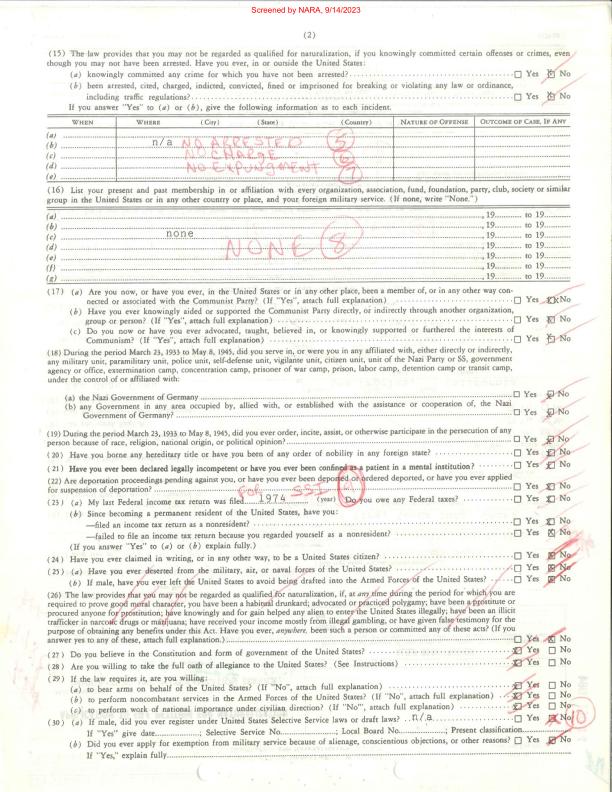 Screened by NARA, 9/14/2023
(2)
(15) The law provides that you may not be regarded as qualified for naturalization, if you knowingly committed certain offenses or crimes, even
though you may not have been arrested. Have you ever, in or outside the United States:
(a) knowingly committed any crime for which you have not been arrested? ☐ Yes ☒ No
(b) been arrested, cited, charged, indicted, convicted, fined or imprisoned for breaking or violating any law or ordinance,
including traffic regulations? ☐ Yes ☒ No
If you answer "Yes" to (a) or (b), give the following information as to each incident.
WHEN WHERE (City) (State) (Country) NATURE OF OFFENSE OUTCOME OF CASE, IF ANY
(a)
(b) n/a NO ARRESTED 5
(c) NO CHARGE 6
(d) NO EXPUNGMENT 7
(e)
(16) List your present and past membership in or affiliation with every organization, association, fund, foundation, party, club, society or similar
group in the United States or in any other country or place, and your foreign military service. (If none, write "None.")
(a) , 19 to 19
(b) , 19 to 19
(c) none , 19 to 19
(d) NONE 8 , 19 to 19
(e) , 19 to 19
(f) , 19 to 19
(g) , 19 to 19
(17) (a) Are you now, or have you ever, in the United States or in any other place, been a member of, or in any other way con-
nected or associated with the Communist Party? (If "Yes", attach full explanation) ☐ Yes ☒ No
(b) Have you ever knowingly aided or supported the Communist Party directly, or indirectly through another organization,
group or person? (If "Yes", attach full explanation) ☐ Yes ☒ No
(c) Do you now or have you ever advocated, taught, believed in, or knowingly supported or furthered the interests of
Communism? (If "Yes", attach full explanation) ☐ Yes ☒ No
(18) During the period March 23, 1933 to May 8, 1945, did you serve in, or were you in any affiliated with, either directly or indirectly,
any military unit, paramilitary unit, police unit, self-defense unit, vigilante unit, citizen unit, unit of the Nazi Party or SS, government
agency or office, extermination camp, concentration camp, prisoner of war camp, prison, labor camp, detention camp or transit camp,
under the control of or affiliated with:
(a) the Nazi Government of Germany ☐ Yes ☒ No
(b) any Government in any area occupied by, allied with, or established with the assistance or cooperation of, the Nazi
Government of Germany? ☐ Yes ☒ No
(19) During the period March 23, 1933 to May 8, 1945, did you ever order, incite, assist, or otherwise participate in the persecution of any
person because of race, religion, national origin, or political opinion? ☐ Yes ☒ No
(20) Have you borne any hereditary title or have you been of any order of nobility in any foreign state? ☐ Yes ☒ No
(21) Have you ever been declared legally incompetent or have you ever been confined as a patient in a mental institution? ☐ Yes ☒ No
(22) Are deportation proceedings pending against you, or have you ever been deported or ordered deported, or have you ever applied
for suspension of deportation? ☐ Yes ☒ No
FOR SSI 9
(23) (a) My last Federal income tax return was filed 1974 (year) Do you owe any Federal taxes? ☐ Yes ☒ No
(b) Since becoming a permanent resident of the United States, have you:
—filed an income tax return as a nonresident? ☐ Yes ☒ No
—failed to file an income tax return because you regarded yourself as a nonresident? ☐ Yes ☒ No
(If you answer "Yes" to (a) or (b) explain fully.)
(24) Have you ever claimed in writing, or in any other way, to be a United States citizen? ☐ Yes ☒ No
(25) (a) Have you ever deserted from the military, air, or naval forces of the United States? ☐ Yes ☒ No
(b) If male, have you ever left the United States to avoid being drafted into the Armed Forces of the United States? ☐ Yes ☒ No
(26) The law provides that you may not be regarded as qualified for naturalization, if, at any time during the period for which you are
required to prove good moral character, you have been a habitual drunkard; advocated or practiced polygamy; have been a prostitute or
procured anyone for prostitution; have knowingly and for gain helped any alien to enter the United States illegally; have been an illicit
trafficker in narcotic drugs or marijuana; have received your income mostly from illegal gambling, or have given false testimony for the
purpose of obtaining any benefits under this Act. Have you ever, anywhere, been such a person or committed any of these acts? (If you
answer yes to any of these, attach full explanation.) ☐ Yes ☒ No
(27) Do you believe in the Constitution and form of government of the United States? ☒ Yes ☐ No
(28) Are you willing to take the full oath of allegiance to the United States? (See Instructions) ☒ Yes ☐ No
(29) If the law requires it, are you willing:
(a) to bear arms on behalf of the United States? (If "No", attach full explanation) ☒ Yes ☐ No
(b) to perform noncombatant services in the Armed Forces of the United States? (If "No", attach full explanation) ☒ Yes ☐ No
(c) to perform work of national importance under civilian direction? (If "No", attach full explanation) ☒ Yes ☐ No
(30) (a) If male, did you ever register under United States Selective Service laws or draft laws? n/a ☐ Yes ☒ No 10
If "Yes" give date ; Selective Service No. ; Local Board No. ; Present classification
(b) Did you ever apply for exemption from military service because of alienage, conscientious objections, or other reasons? ☐ Yes ☒ No
If "Yes," explain fully